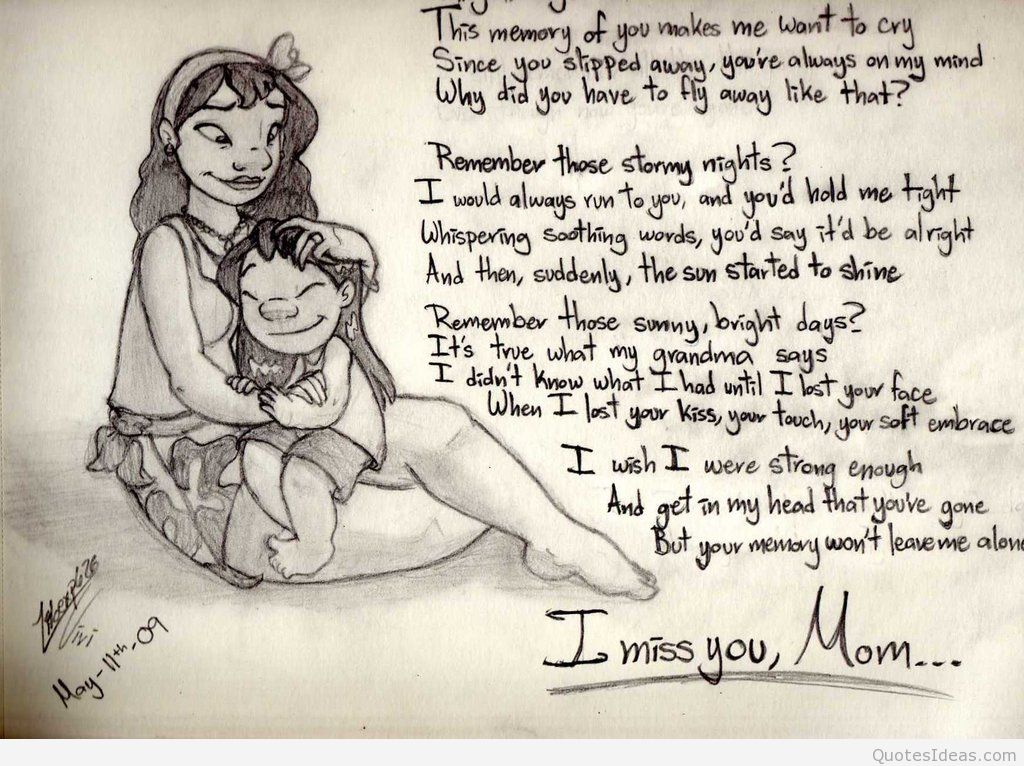 This memory of you makes me want to cry
Since you slipped away, you've always on my mind
Why did you have to fly away like that?
Remember those stormy nights?
I would always run to you, and you'd hold me tight
Whispering soothing words, you'd say it'd be alright
And then, suddenly, the sun started to shine
Remember those sunny, bright days?
It's true what my grandma says
I didn't know what I had until I lost your face
When I lost your kiss, your touch, your soft embrace
I wish I were strong enough
And get in my head that you've gone
But your memory won't leave me alone
I miss you, Mom...
May-11th-09
QuotesIdeas.com